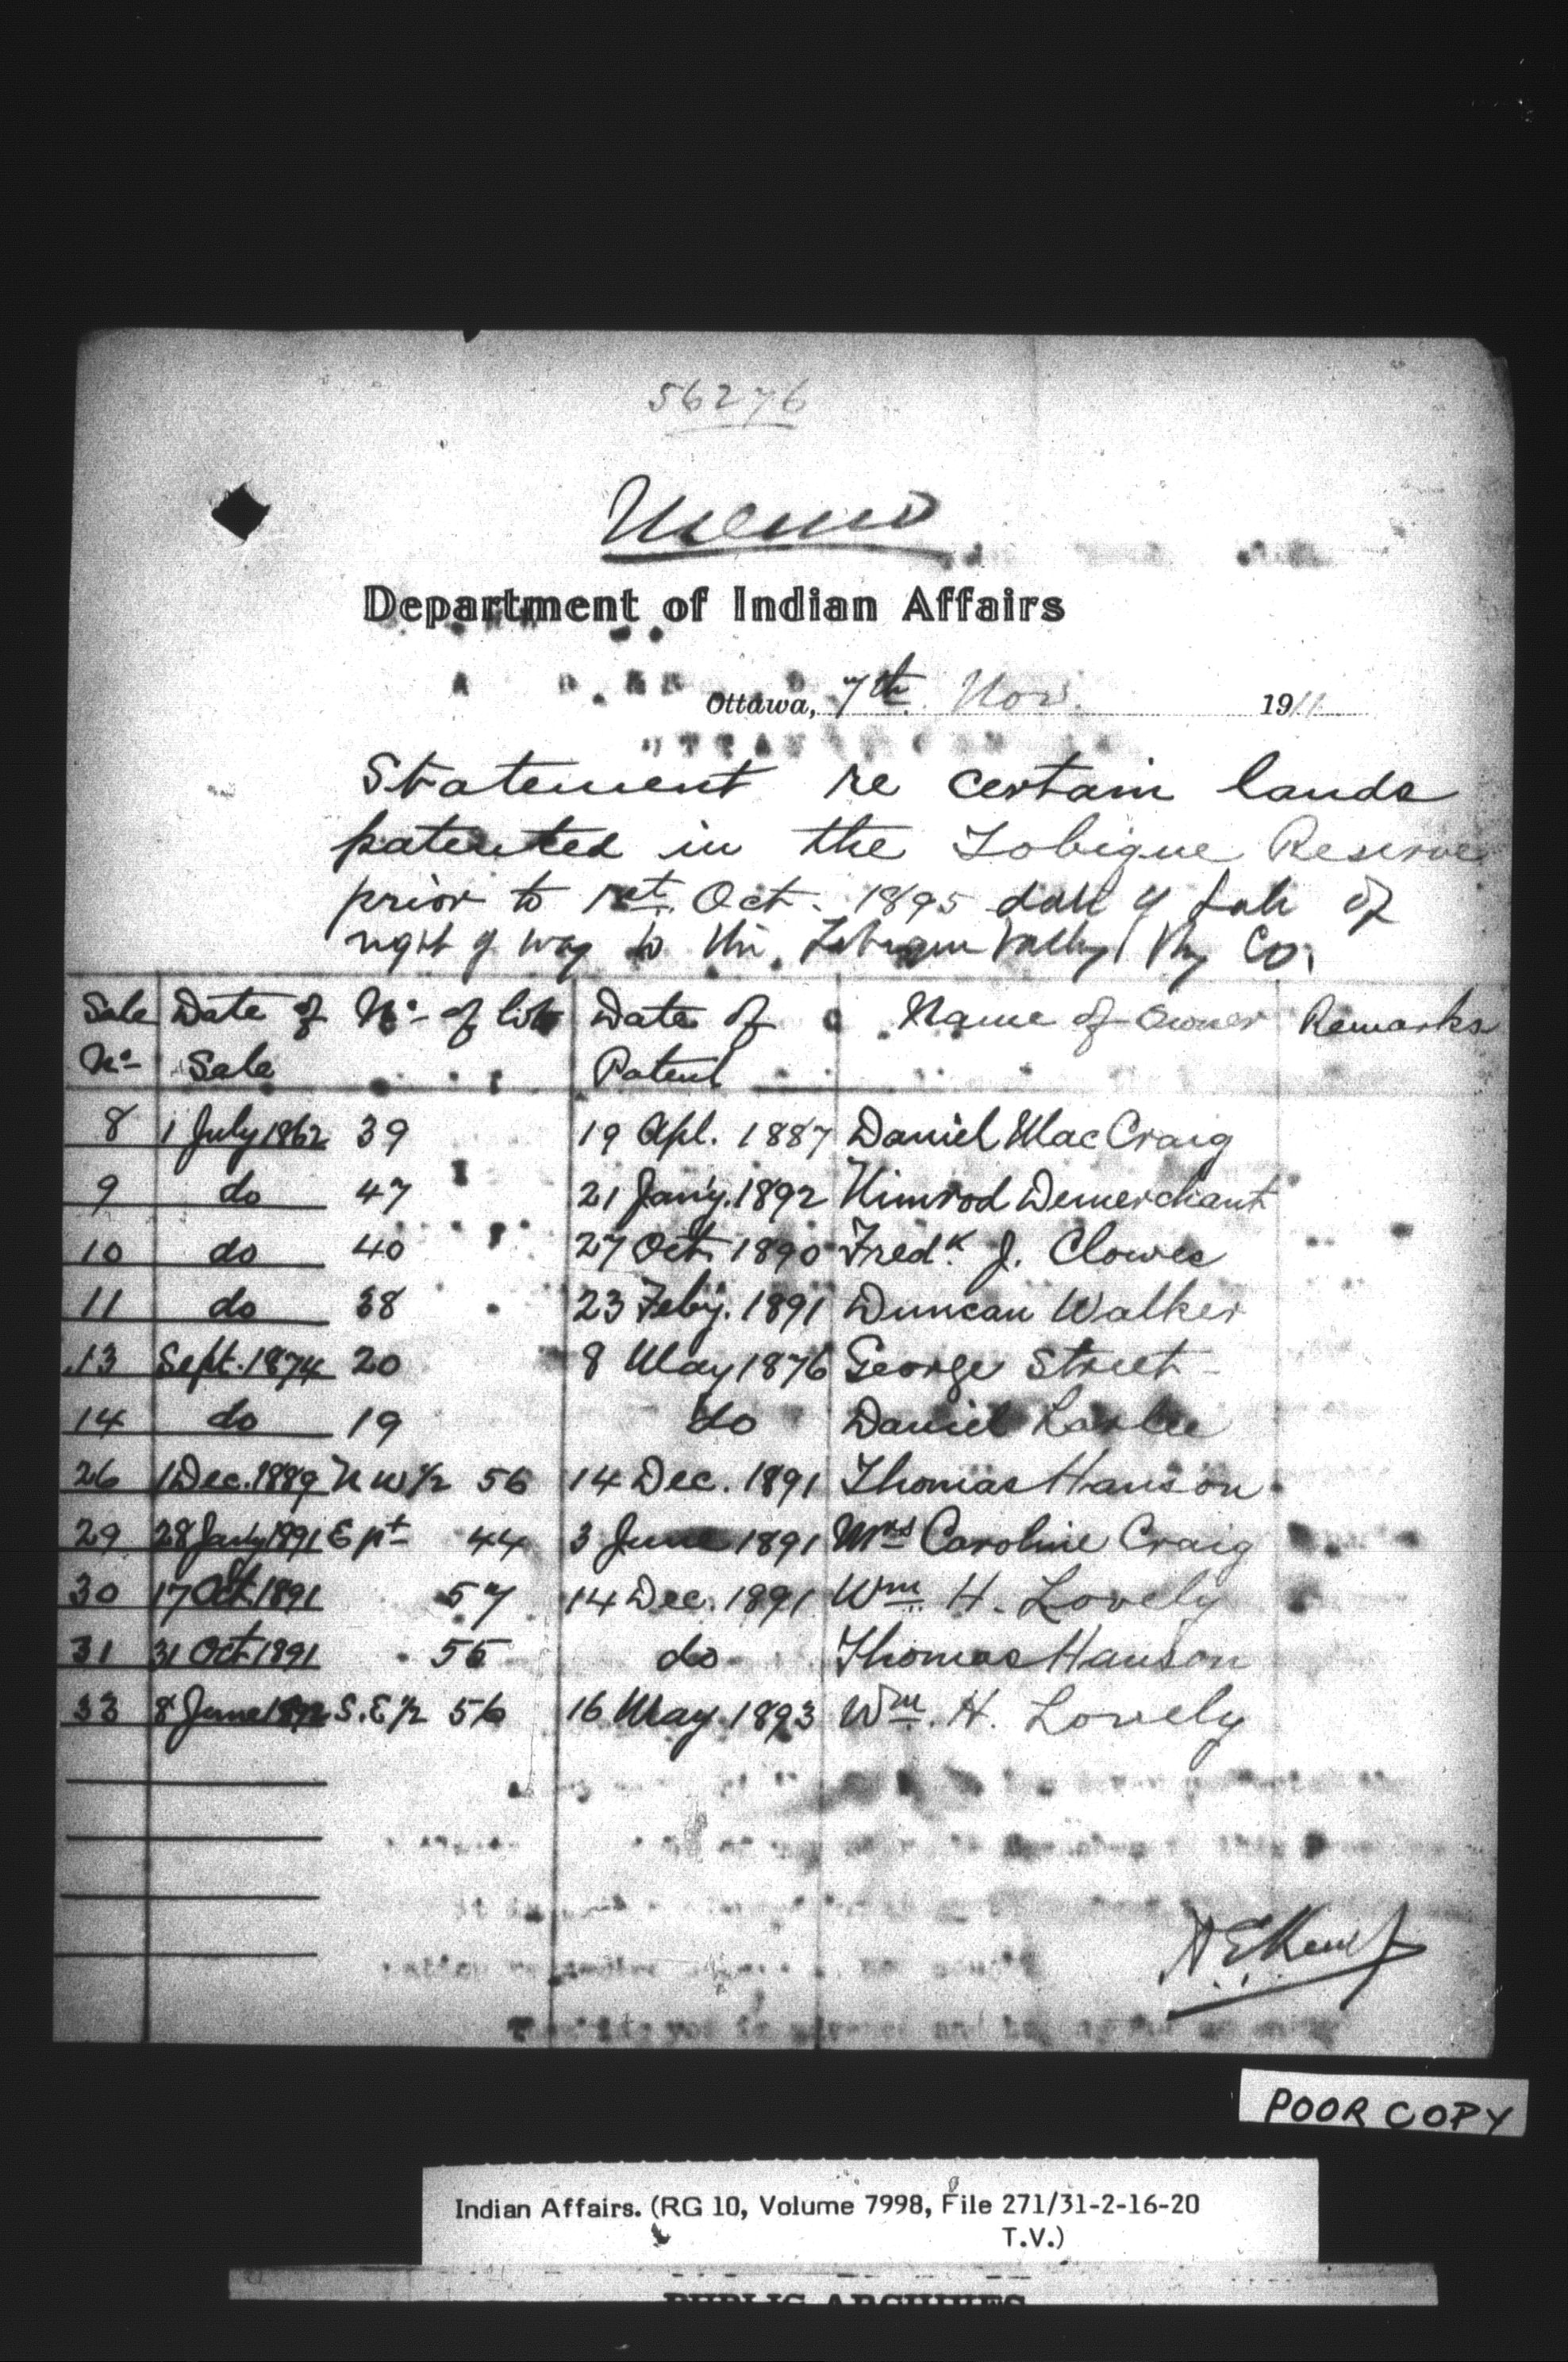 56276
Memo
Department of Indian Affairs
Ottawa, 7th Nov. 1911
Statement re certain lands
patented in the Tobique Reserve
prior to 1st Oct. 1895 date of sale of
right of way to the Tobique Valley Ry Co.
Sale No Date of Sale No of lot Date of Patent Name of Owner Remarks
8 1 July 1862 39 19 Apl. 1887 Daniel MacCraig
9 do 47 21 Jan'y. 1892 Nimrod Demerchant
10 do 40 27 Oct. 1890 Fredk. J. Clowes
11 do 38 23 Feby. 1891 Duncan Walker
13 Sept. 1874 20 8 May 1876 George Street
14 do 19 do Daniel
26 1 Dec. 1889 N W 1/2 56 14 Dec. 1891 Thomas Hanson
29 28 Jany 1891 E pt 44 3 June 1891 Mrs Caroline Craig
30 17 Oct 1891 57 14 Dec. 1891 Wm H. Lovely
31 31 Oct 1891 55 do Thomas Hanson
33 8 June 1892 S.E 1/2 56 16 May 1893 Wm. H. Lovely
POOR COPY
Indian Affairs. (RG 10, Volume 7998, File 271/31-2-16-20
T.V.)
PUBLIC ARCHIVES